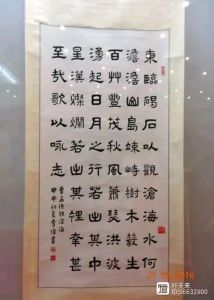 東臨碣石以觀滄海水何
澹澹山島竦峙樹木叢生
百艸豐茂秋風蕭瑟洪波
湧起日月之行若出其中
星漢燦爛若出其裡幸甚
至哉歌以咏志
曹孟德觀滄海
56632900